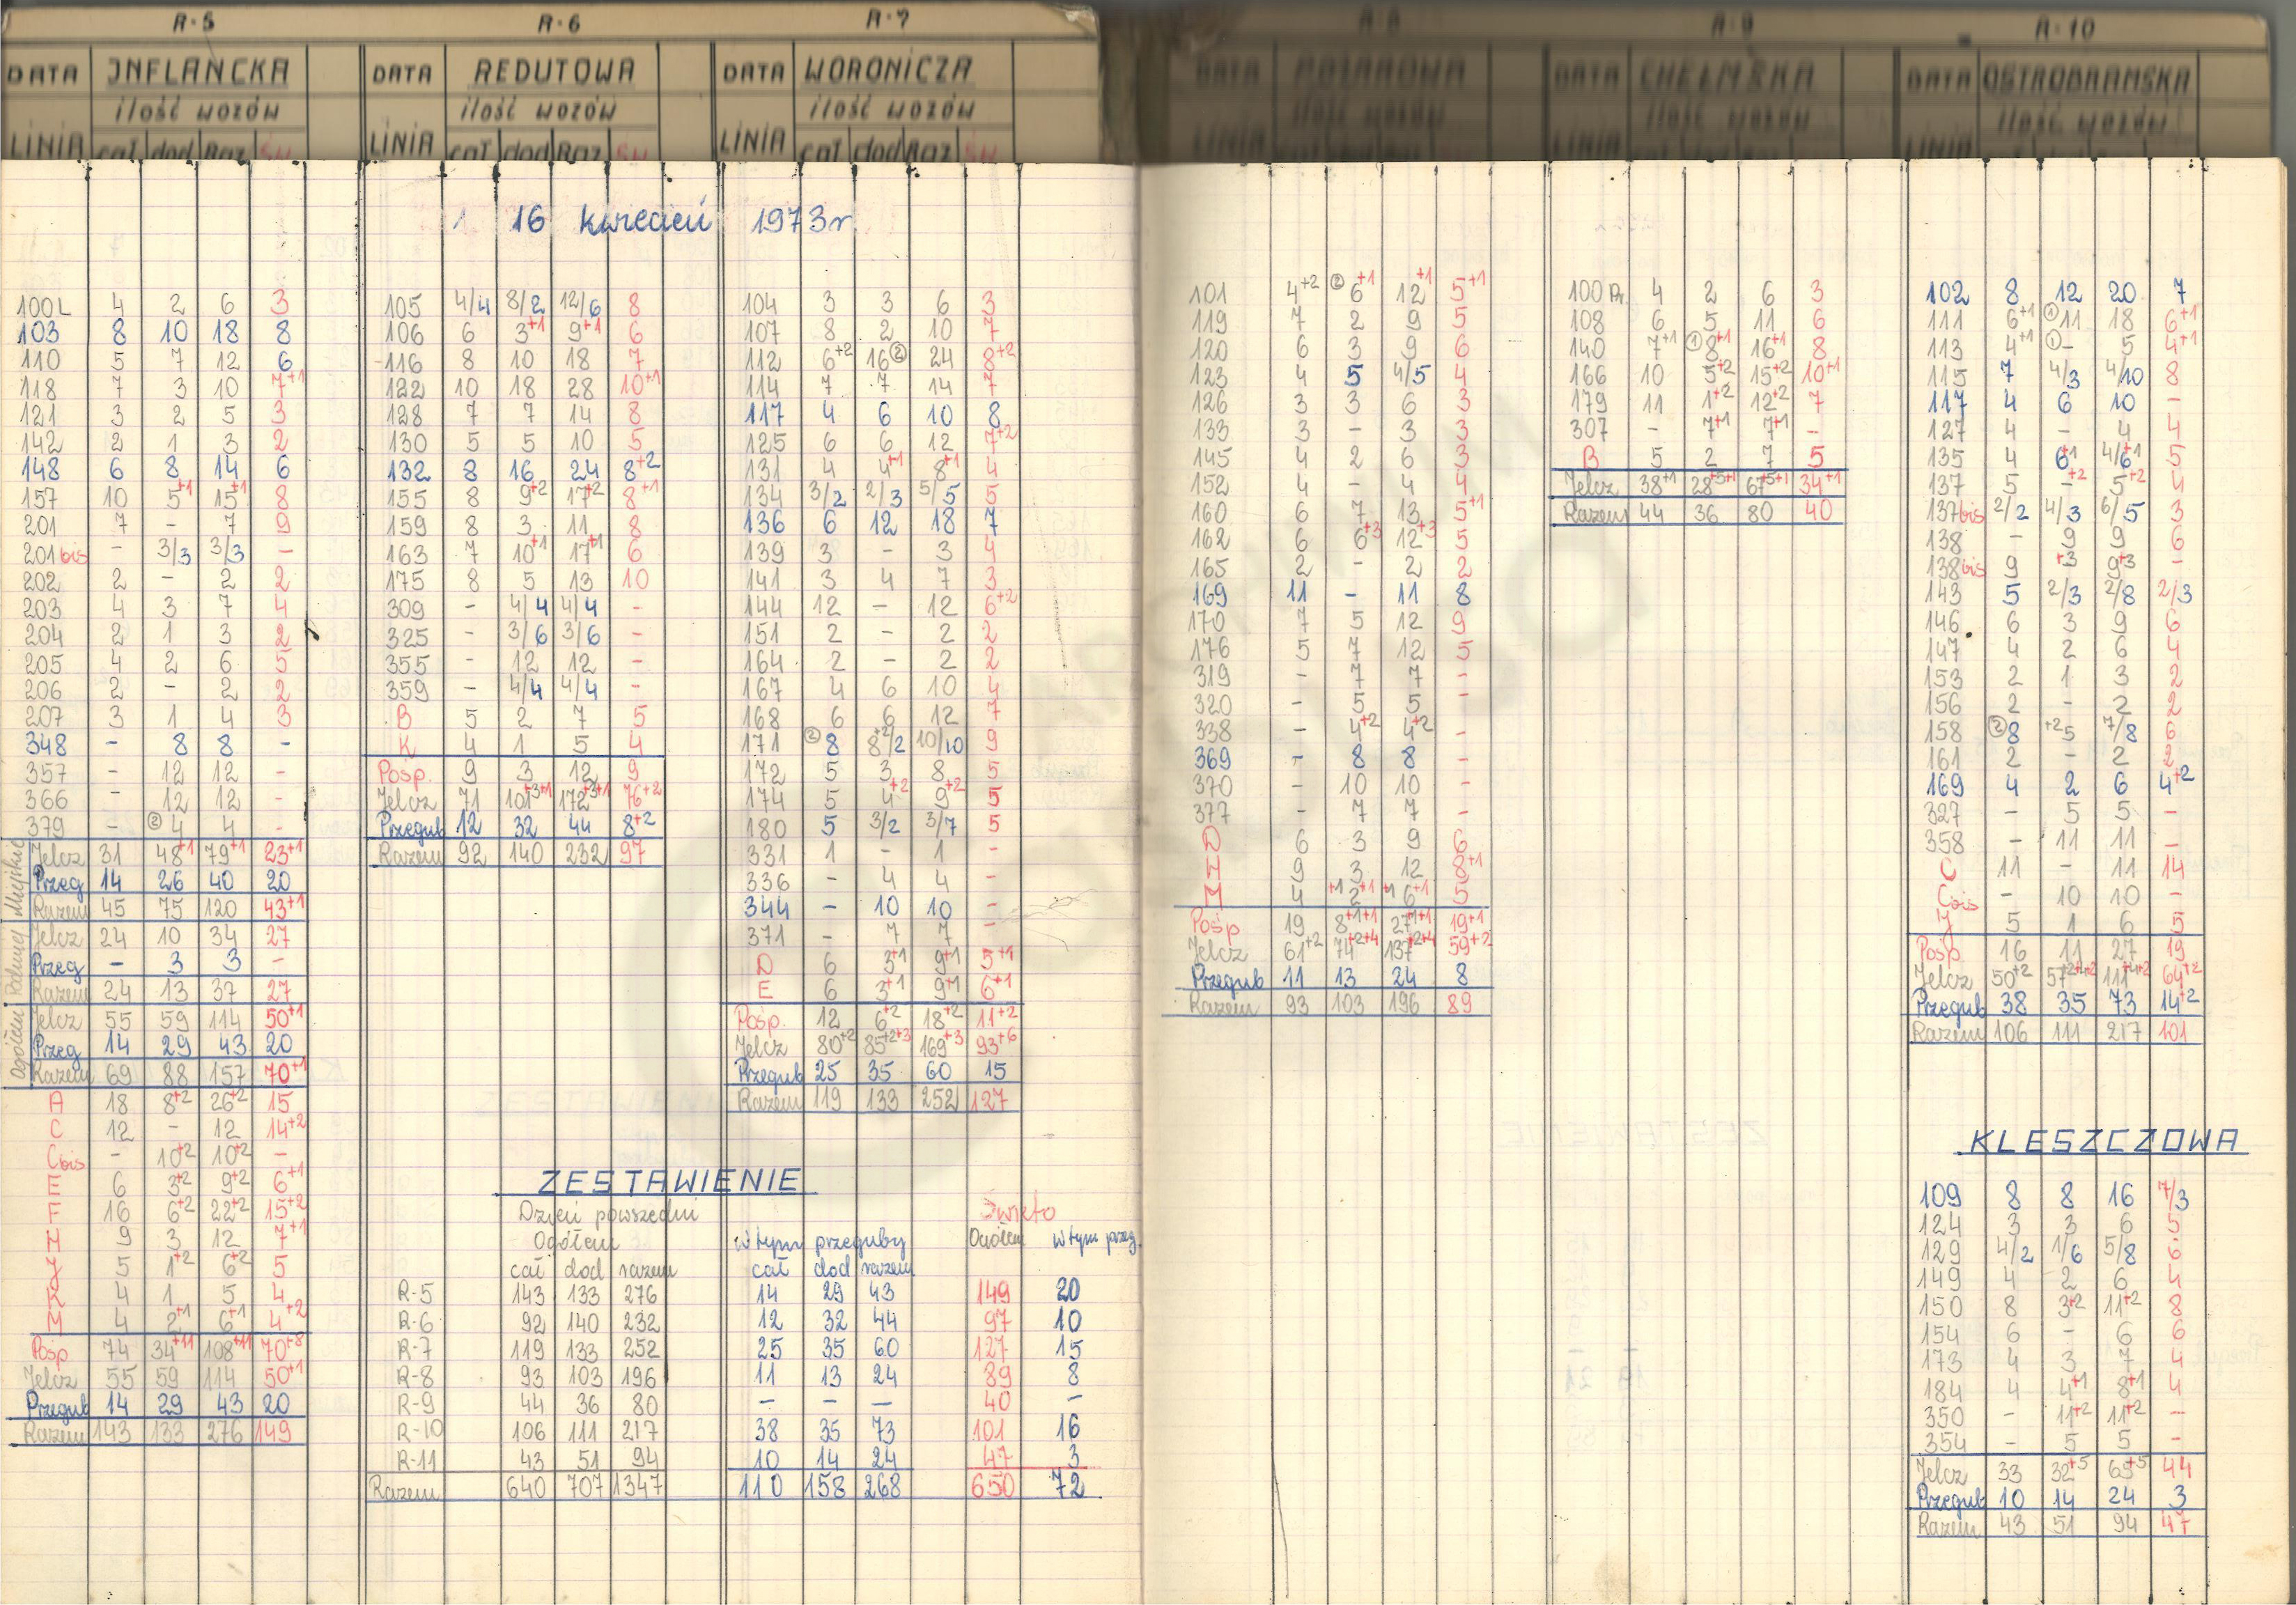 R-5
DATA INFLANCKA
ilość wozów
LINIA cał dod Raz Św
100L 4 2 6 3
103 8 10 18 8
110 5 7 12 6
118 7 3 10 7+1
121 3 2 5 3
142 2 1 3 2
148 6 8 14 6
157 10 5+1 15+1 8
201 7 - 7 9
201bis - 3/3 3/3 -
202 2 - 2 2
203 4 3 7 4
204 2 1 3 2
205 4 2 6 5
206 2 - 2 2
207 3 1 4 3
348 - 8 8 -
357 - 12 12 -
366 - 12 12 -
379 - ② 4 4 -
Miejskie
Jelcz 31 48+1 79+1 23+1
Przeg 14 26 40 20
Razem 45 75 120 43+1
Jelcz 24 10 34 27
Przeg - 3 3 -
Razem 24 13 37 27
Ogółem
Jelcz 55 59 114 50+1
Przeg 14 29 43 20
Razem 69 88 157 70+1
A 18 8+2 26+2 15
C 12 - 12 14+2
Cbis - 10+2 10+2 -
E 6 3+2 9+2 6+1
F 16 6+2 22+2 15+2
H 9 3 12 7+1
5 1+2 6+2 5
K 4 1 5 4
M 4 2+1 6+1 4+2
Pośp 74 34+11 108+11 70+8
Jelcz 55 59 114 50+1
Przegub 14 29 43 20
Razem 143 133 276 149
R-6
DATA REDUTOWA
ilość wozów
LINIA cał dod Raz Św
1 16 kwiecień 1973r
105 4/4 8/2 12/6 8
106 6 3+1 9+1 6
116 8 10 18 7
122 10 18 28 10+1
128 7 7 14 8
130 5 5 10 5
132 8 16 24 8+2
155 8 9+2 17+2 8+1
159 8 3 11 8
163 7 10+1 17+1 6
175 8 5 13 10
309 - 4/4 4/4 -
325 - 3/6 3/6 -
355 - 12 12 -
359 - 4/4 4/4 -
B 5 2 7 5
K 4 1 5 4
Pośp. 9 3 12 9
Jelcz 71 101+3+1 172+3+1 76+2
Przegub 12 32 44 8+2
Razem 92 140 232 97
R-7
DATA WORONICZA
ilość wozów
LINIA cał dod Raz Św
104 3 3 6 3
107 8 2 10 7
112 6+2 16② 24 8+2
114 7 7 14 7
117 4 6 10 8
125 6 6 12 7+2
131 4 4+1 8+1 4
134 3/2 2/3 5/5 5
136 6 12 18 7
139 3 - 3 4
141 3 4 7 3
144 12 - 12 6+2
151 2 - 2 2
164 2 - 2 2
167 4 6 10 4
168 6 6 12 7
171 ②8 8+2/2 10/10 9
172 5 3 8 5
174 5 4+2 9+2 5
180 5 3/2 3/7 5
331 1 - 1 -
336 - 4 4 -
344 - 10 10 -
371 - 7 7 -
D 6 3+1 9+1 5+1
E 6 3+1 9+1 6+1
Pośp. 12 6+2 18+2 11+2
Jelcz 80+2 85+2+3 169+3 93+6
Przegub 25 35 60 15
Razem 119 133 252 127
ZESTAWIENIE
Dzień powszedni Święto
Ogółem w tym przeguby Ogółem w tym przeg.
cał dod razem cał dod razem
R-5 143 133 276 14 29 43 149 20
R-6 92 140 232 12 32 44 97 10
R-7 119 133 252 25 35 60 127 15
R-8 93 103 196 11 13 24 89 8
R-9 44 36 80 - - - 40 -
R-10 106 111 217 38 35 73 101 16
R-11 43 51 94 10 14 24 47 3
Razem 640 707 1347 110 158 268 650 72
R-8
DATA
ilość wozów
LINIA
101 4+2 ②6+1 12+1 5+1
119 7 2 9 5
120 6 3 9 6
123 4 5 4/5 4
126 3 3 6 3
133 3 - 3 3
145 4 2 6 3
152 4 - 4 4
160 6 7 13 5+1
162 6 6+3 12+3 5
165 2 - 2 2
169 11 - 11 8
170 7 5 12 9
176 5 7 12 5
319 - 7 7 -
320 - 5 5 -
338 - 4+2 4+2 -
369 - 8 8 -
370 - 10 10 -
377 - 7 7 -
D 6 3 9 6
H 9 3 12 8+1
M 4 +1 2+1 +1 6+1 5
Pośp 19 8+1+1 27+1+1 19+1
Jelcz 61+2 74+2+4 137+2+4 59+2
Przegub 11 13 24 8
Razem 93 103 196 89
R-9
DATA CHEŁMSKA
ilość wozów
LINIA
100 Pr. 4 2 6 3
108 6 5 11 6
140 7+1 ①8+1 16+1 8
166 10 5+2 15+2 10+1
179 11 1+2 12+2 7
307 - 7+1 7+1 -
B 5 2 7 5
Jelcz 38+1 28+5+1 67+5+1 34+1
Razem 44 36 80 40
R-10
DATA OSTROBRAMSKA
ilość wozów
LINIA
102 8 12 20 7
111 6+1 ①11 18 6+1
113 4+1 ①- 5 4+1
115 7 4/3 4/10 8
117 4 6 10 -
127 4 - 4 4
135 4 6+1 4/6+1 5
137 5 -+2 5+2 4
137bis 2/2 4/3 6/5 3
138 - 9 9 6
138bis 9 +3 9+3 -
143 5 2/3 2/8 2/3
146 6 3 9 6
147 4 2 6 4
153 2 1 3 2
156 2 - 2 2
158 ②8 +25 7/8 6
161 2 - 2 2
169 4 2 6 4+2
327 - 5 5 -
358 - 11 11 -
C 11 - 11 14
Cbis - 10 10 -
J 5 1 6 5
Pośp 16 11 27 19
Jelcz 50+2 57+2+4+2 111+4+2 64+2
Przegub 38 35 73 14+2
Razem 106 111 217 101
KLESZCZOWA
109 8 8 16 7/3
124 3 3 6 5
129 4/2 1/6 5/8 6
149 4 2 6 4
150 8 3+2 11+2 8
154 6 - 6 6
173 4 3 7 4
184 4 4+1 8+1 4
350 - 11+2 11+2 -
354 - 5 5 -
Jelcz 33 32+5 65+5 44
Przegub 10 14 24 3
Razem 43 51 94 47